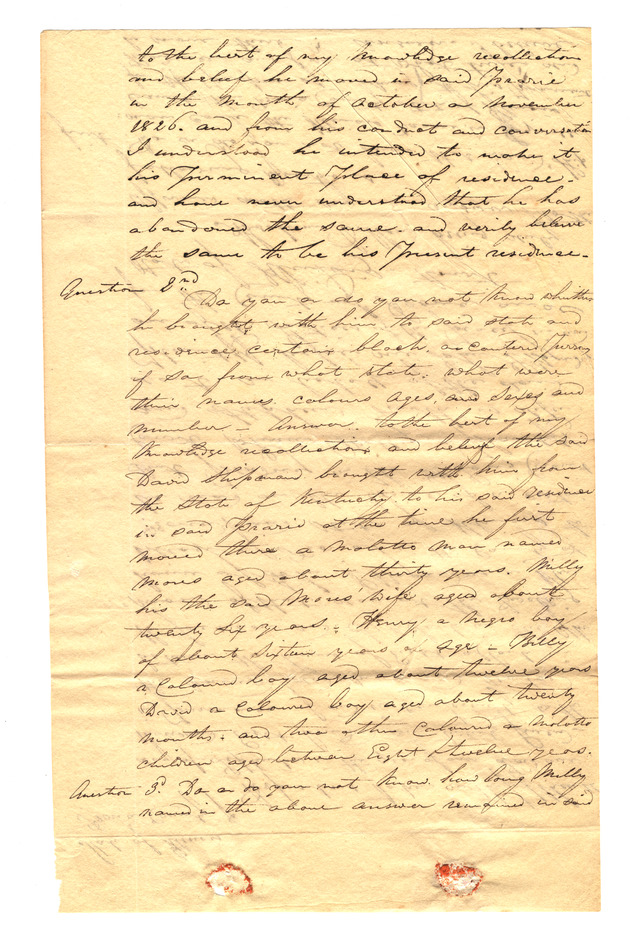 to the best of my knowledge recollection
and belief he moved in said Prarie
in the month of october or November
1826. and from his conduct and conversation
I understood he intended to make it
his Perminent Place of residence -
and have never understood that he has
abandoned the same. and verily believe
the same to be his Present residence -
Question 2nd
Do you or do you not know whether
he brought with him to said state and
residence certain black or coulered Persons
if so from what state. what were
their names. colours ages, and sexes and
number - Answer. to the best of my
knowledge recollection and belief the said
David Shipman brought with him from
the State of Kentucky to his said residence
in said Prarie at the time he first
moved there a molotto man named
Moses aged about thirty years. Milly
his the said Moses' wife aged about
twenty six years. - Henry a negro boy
of about sixteen years of age - Billy
a Coloured boy aged about twelve years
David a Coloured boy aged about twenty
months. and two other Coloured or molotto
children aged between Eight & twelve years.
Question 3d. Do or do you not know how long Milly
named in the above answer remained in said